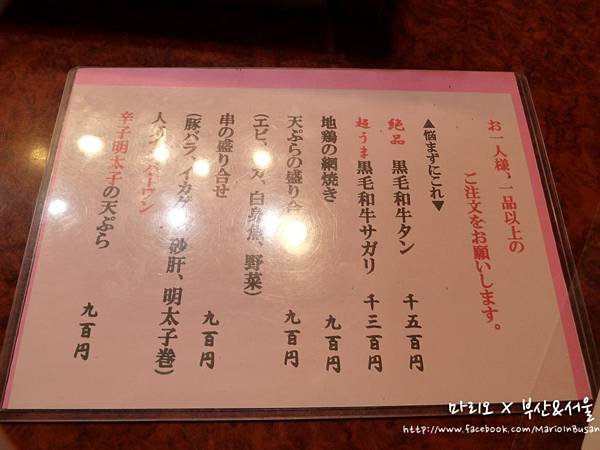 お一人様、一品以上の
ご注文をお願いします。
▲悩まずにこれ▼
絶品 黒毛和牛タン 千五百円
超うま黒毛和牛サガリ 千三百円
地鶏の網焼き 九百円
天ぷらの盛り合 九百円
(エビ、 白身魚、野菜)
串の盛り合せ 九百円
(豚バラ、イカ 砂肝、明太子巻)
人 ウン
辛子明太子の天ぷら 九百円
마리오 X 부산&서울
http://www.facebook.com/MarioInBusan